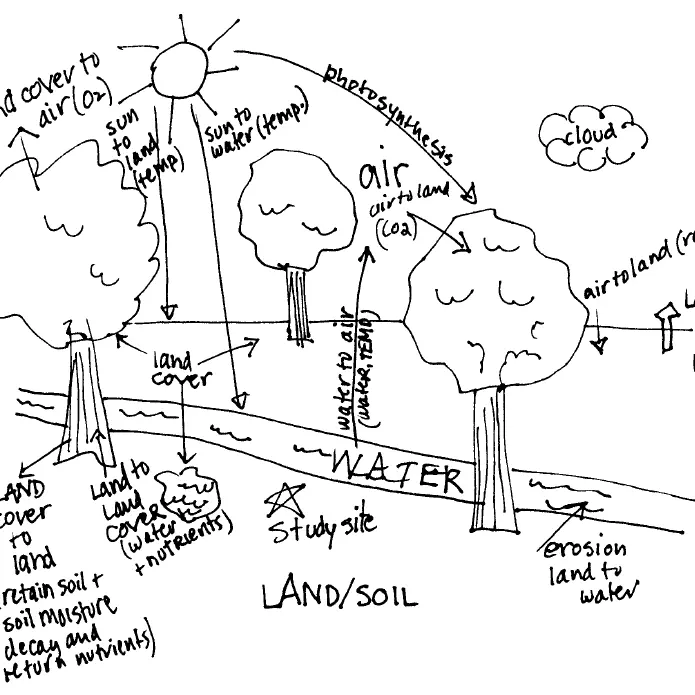 nd cover to
air (O2)
sun
to
land
(temp)
sun to
water (temp.)
photosynthesis
cloud
air
air to land
(CO2)
air to land (r
L
water to air
(water, TEMP)
land
cover
WATER
LAND
cover
to
land
retain soil +
soil moisture
decay and
return nutrients)
Land to
Land
cover
(water
+ nutrients)
Study site
erosion
land to
water
LAND/SOIL